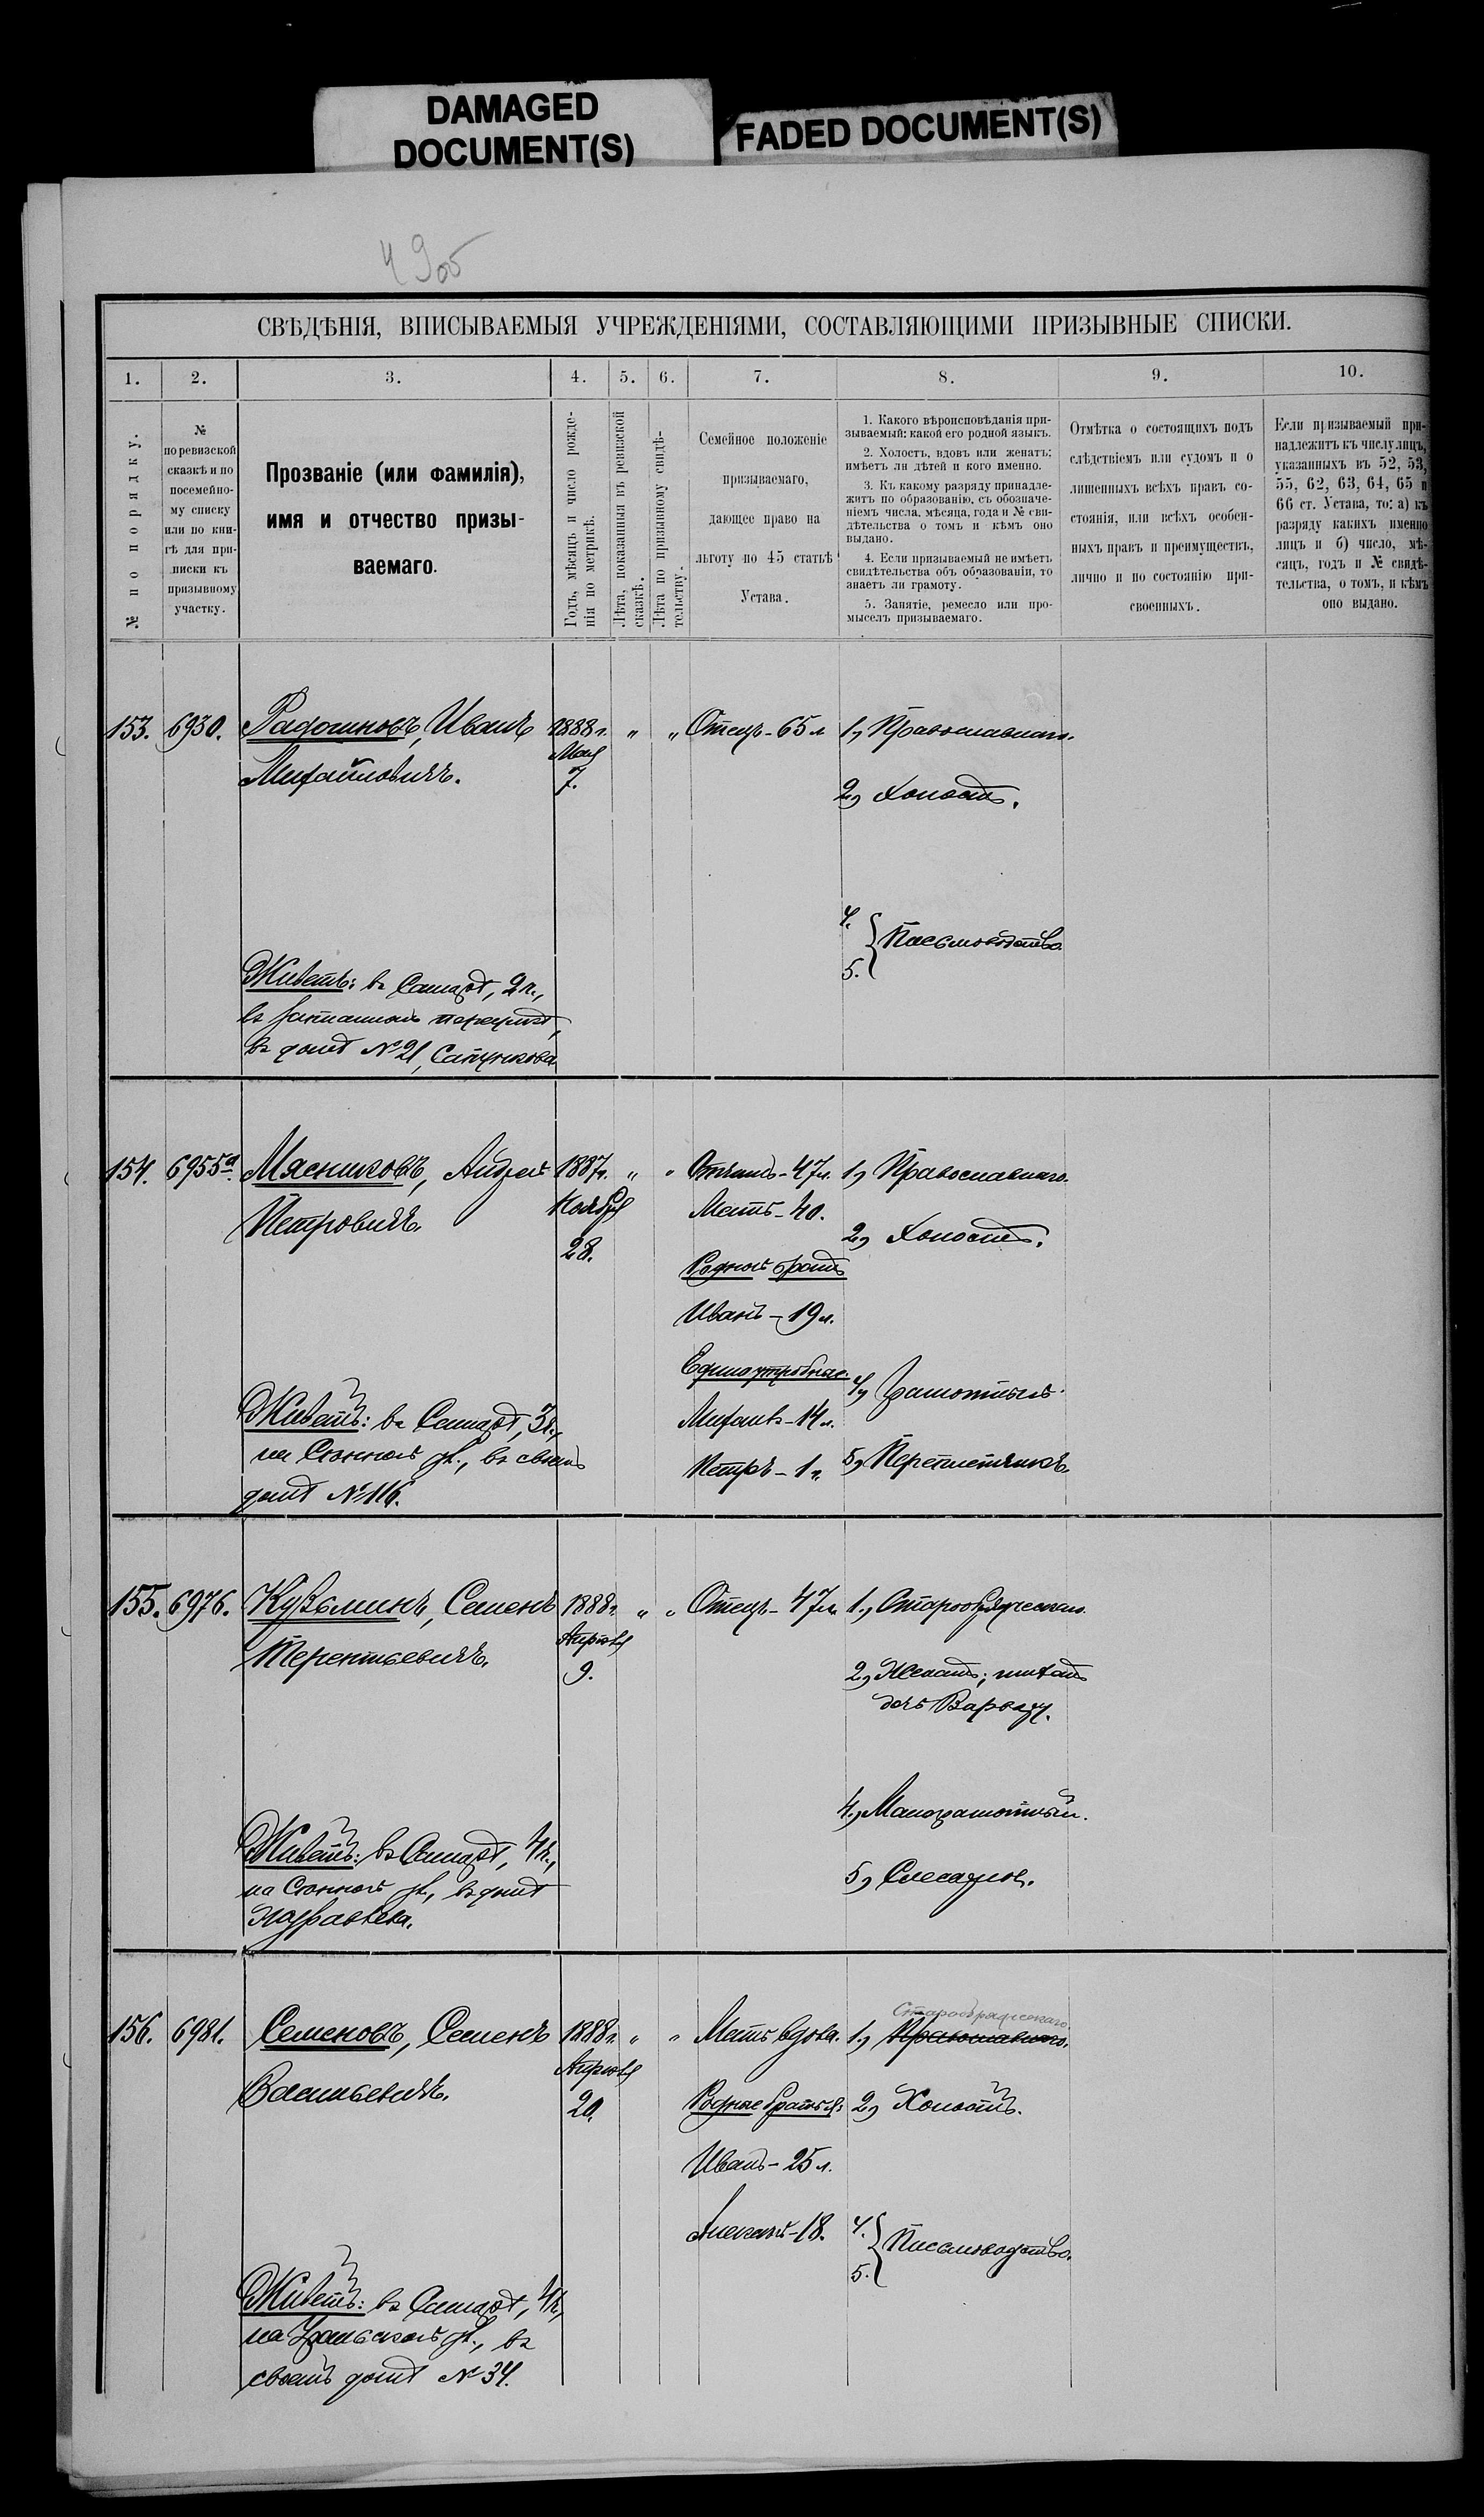 DAMAGED
DOCUMENT(S)
FADED DOCUMENT(S)
СВѢДѢНІЯ, ВПИСЫВАЕМЫЯ УЧРЕЖДЕНІЯМИ, СОСТАВЛЯЮЩИМИ ПРИЗЫВНЫЕ СПИСКИ.
1. 2. 3. 4. 5. 6. 7. 8. 9. 10.
№ по порядку.
№
по ревизской
сказкѣ и по
посемейно-
му списку
или по кни-
гѣ для при-
писки къ
призывному
участку.
Прозваніе (или фамилія),
имя и отчество призы-
ваемаго.
Годъ, мѣсяцъ и число рожде-
нія по метрикѣ.
Лѣта, показанныя въ ревизской
сказкѣ.
Лѣта по призывному свидѣ-
тельству.
Семейное положеніе
призываемаго,
дающее право на
льготу по 45 статьѣ
Устава.
1. Какого вѣроисповѣданія при-
зываемый: какой его родной языкъ.
2. Холостъ, вдовъ или женатъ;
имѣетъ ли дѣтей и кого именно.
3. Къ какому разряду принадле-
житъ по образованію, съ обозначе-
ніемъ числа, мѣсяца, года и № сви-
дѣтельства о томъ и кѣмъ оно
выдано.
4. Если призываемый не имѣетъ
свидѣтельства объ образованіи, то
знаетъ ли грамоту.
5. Занятіе, ремесло или про-
мыселъ призываемаго.
Отмѣтка о состоящихъ подъ
слѣдствіемъ или судомъ и о
лишенныхъ всѣхъ правъ со-
стоянія, или всѣхъ особен-
ныхъ правъ и преимуществъ,
лично и по состоянію при-
своенныхъ.
Если призываемый при-
надлежитъ къ числу лицъ,
указанныхъ въ 52, 53,
55, 62, 63, 64, 65 и
66 ст. Устава, то: а) къ
разряду какихъ именно
лицъ и б) число, мѣ-
сяцъ, годъ и № свидѣ-
тельства, о томъ, и кѣмъ
оно выдано.
153. 6930. Иванъ 1888 г. " " Отецъ - 65 л. 1, Православнаго.
Михайловичъ. Мая
7.
2, Холостъ.
4.
5. Письмоводство
Живетъ: въ Самарѣ, 2 ч.,
въ переулкѣ,
въ домѣ № 21,
154. 6955а. Мясниковъ, Андрей 1887 г. " " Отчимъ - 47 л. 1, Православнаго.
Петровичъ. Ноября Мать - 40.
28. 2, Холостъ.
Родной братъ
Иванъ - 19 л.
Единоутробные
4, Грамотный.
Михаилъ - 14 л.
Петръ - 1 г. 5, Переплетчикъ.
Живетъ: въ Самарѣ, 3 ч.,
на Сѣнной ул., въ своемъ
домѣ № 116.
155. 6976. Кузьминъ, Семенъ 1888 г. " " Отецъ - 47 л. 1, Старообрядческаго.
Терентьевичъ. Апрѣля
9. 2, Женатъ; имѣетъ
дочь Варвару.
4, Малограмотный.
5, Слесарное.
Живетъ: въ Самарѣ, 4 ч.,
на Сѣнной ул., въ домѣ
156. 6981. Семеновъ, Семенъ 1888 г. " " Мать вдова. 1, Православнаго.
Старообрядческаго.
Васильевичъ. Апрѣля
20. Родные братья: 2, Холостъ.
Иванъ - 25 л.
Алексѣй - 18.
4.
5. Письмоводство.
Живетъ: въ Самарѣ, 4 ч.,
на Уральской ул., въ
своемъ домѣ № 34.